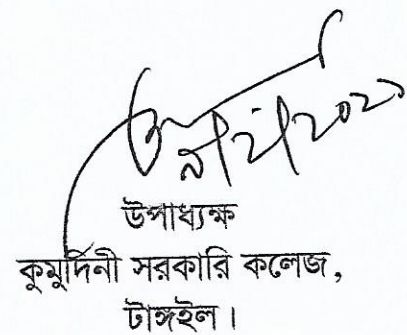 উপাধ্যক্ষ
কুমুদিনী সরকারি কলেজ,
টাঙ্গাইল।